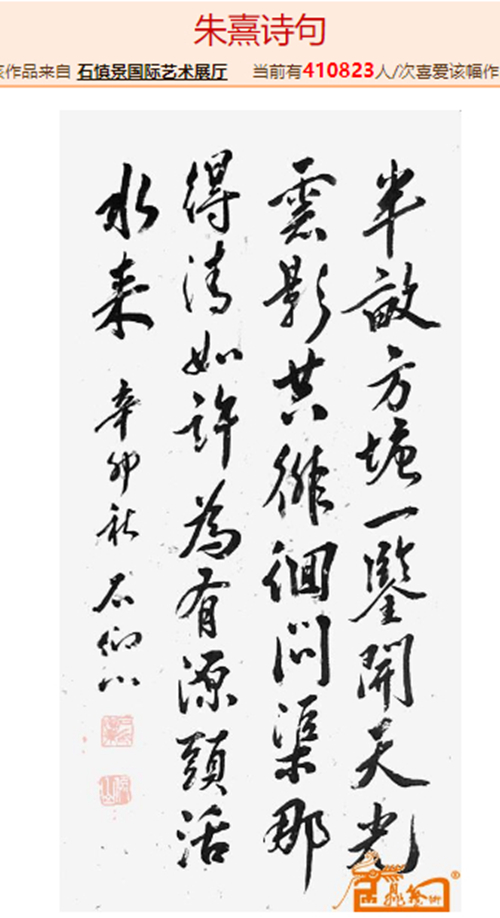 朱熹诗句
该作品来自 石慎景国际艺术展厅 当前有410823人/次喜爱该幅作
半畝方塘一鑒開天光
雲影共徘徊問渠那
得清如許為有源頭活
水来 辛卯秋 石仰山